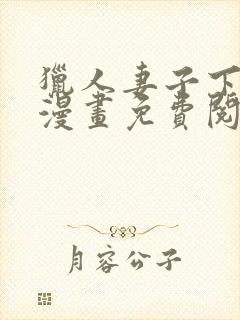 獵人妻子下
漫畫免費閱
月容公子